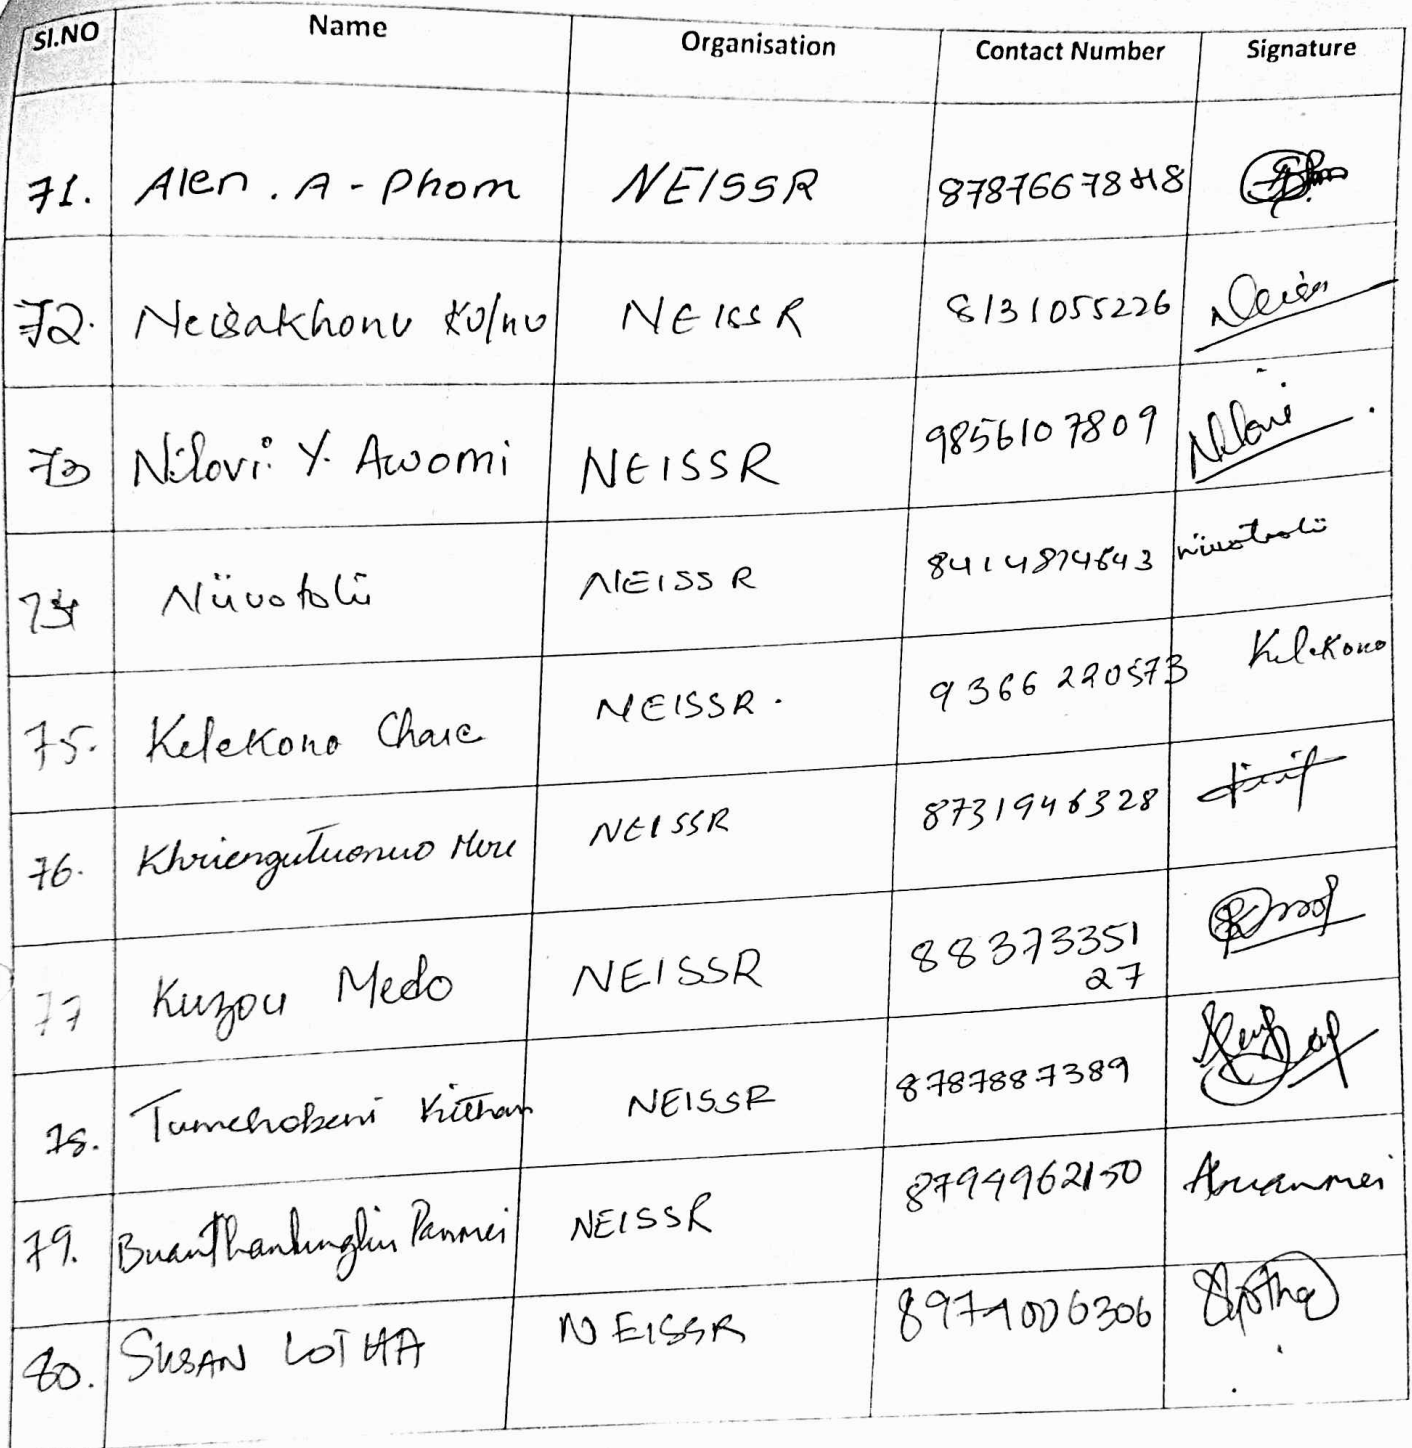 Sl.NO Name Organisation Contact Number Signature
71. Alen . A - Phom NEISSR
72. Neisakhonu NEISSR 8131055226
73 Nilovi Y. Awomi NEISSR 9856107809 Nilovi
74 Nüvotolü NEISSR 8414874643 Nüvotolü
75. Kelekono Chare NEISSR. 9366220573 Kelekono
76. Khriengutuonuo Mere NEISSR 8731946328
77 Kuzou Medo NEISSR 88373351
27
78. Tumchobeni Kithan NEISSR 8787887389
79. Panmei NEISSR 8794962150
80. SUSAN LOTHA NEISSR 8974006306 Slotha